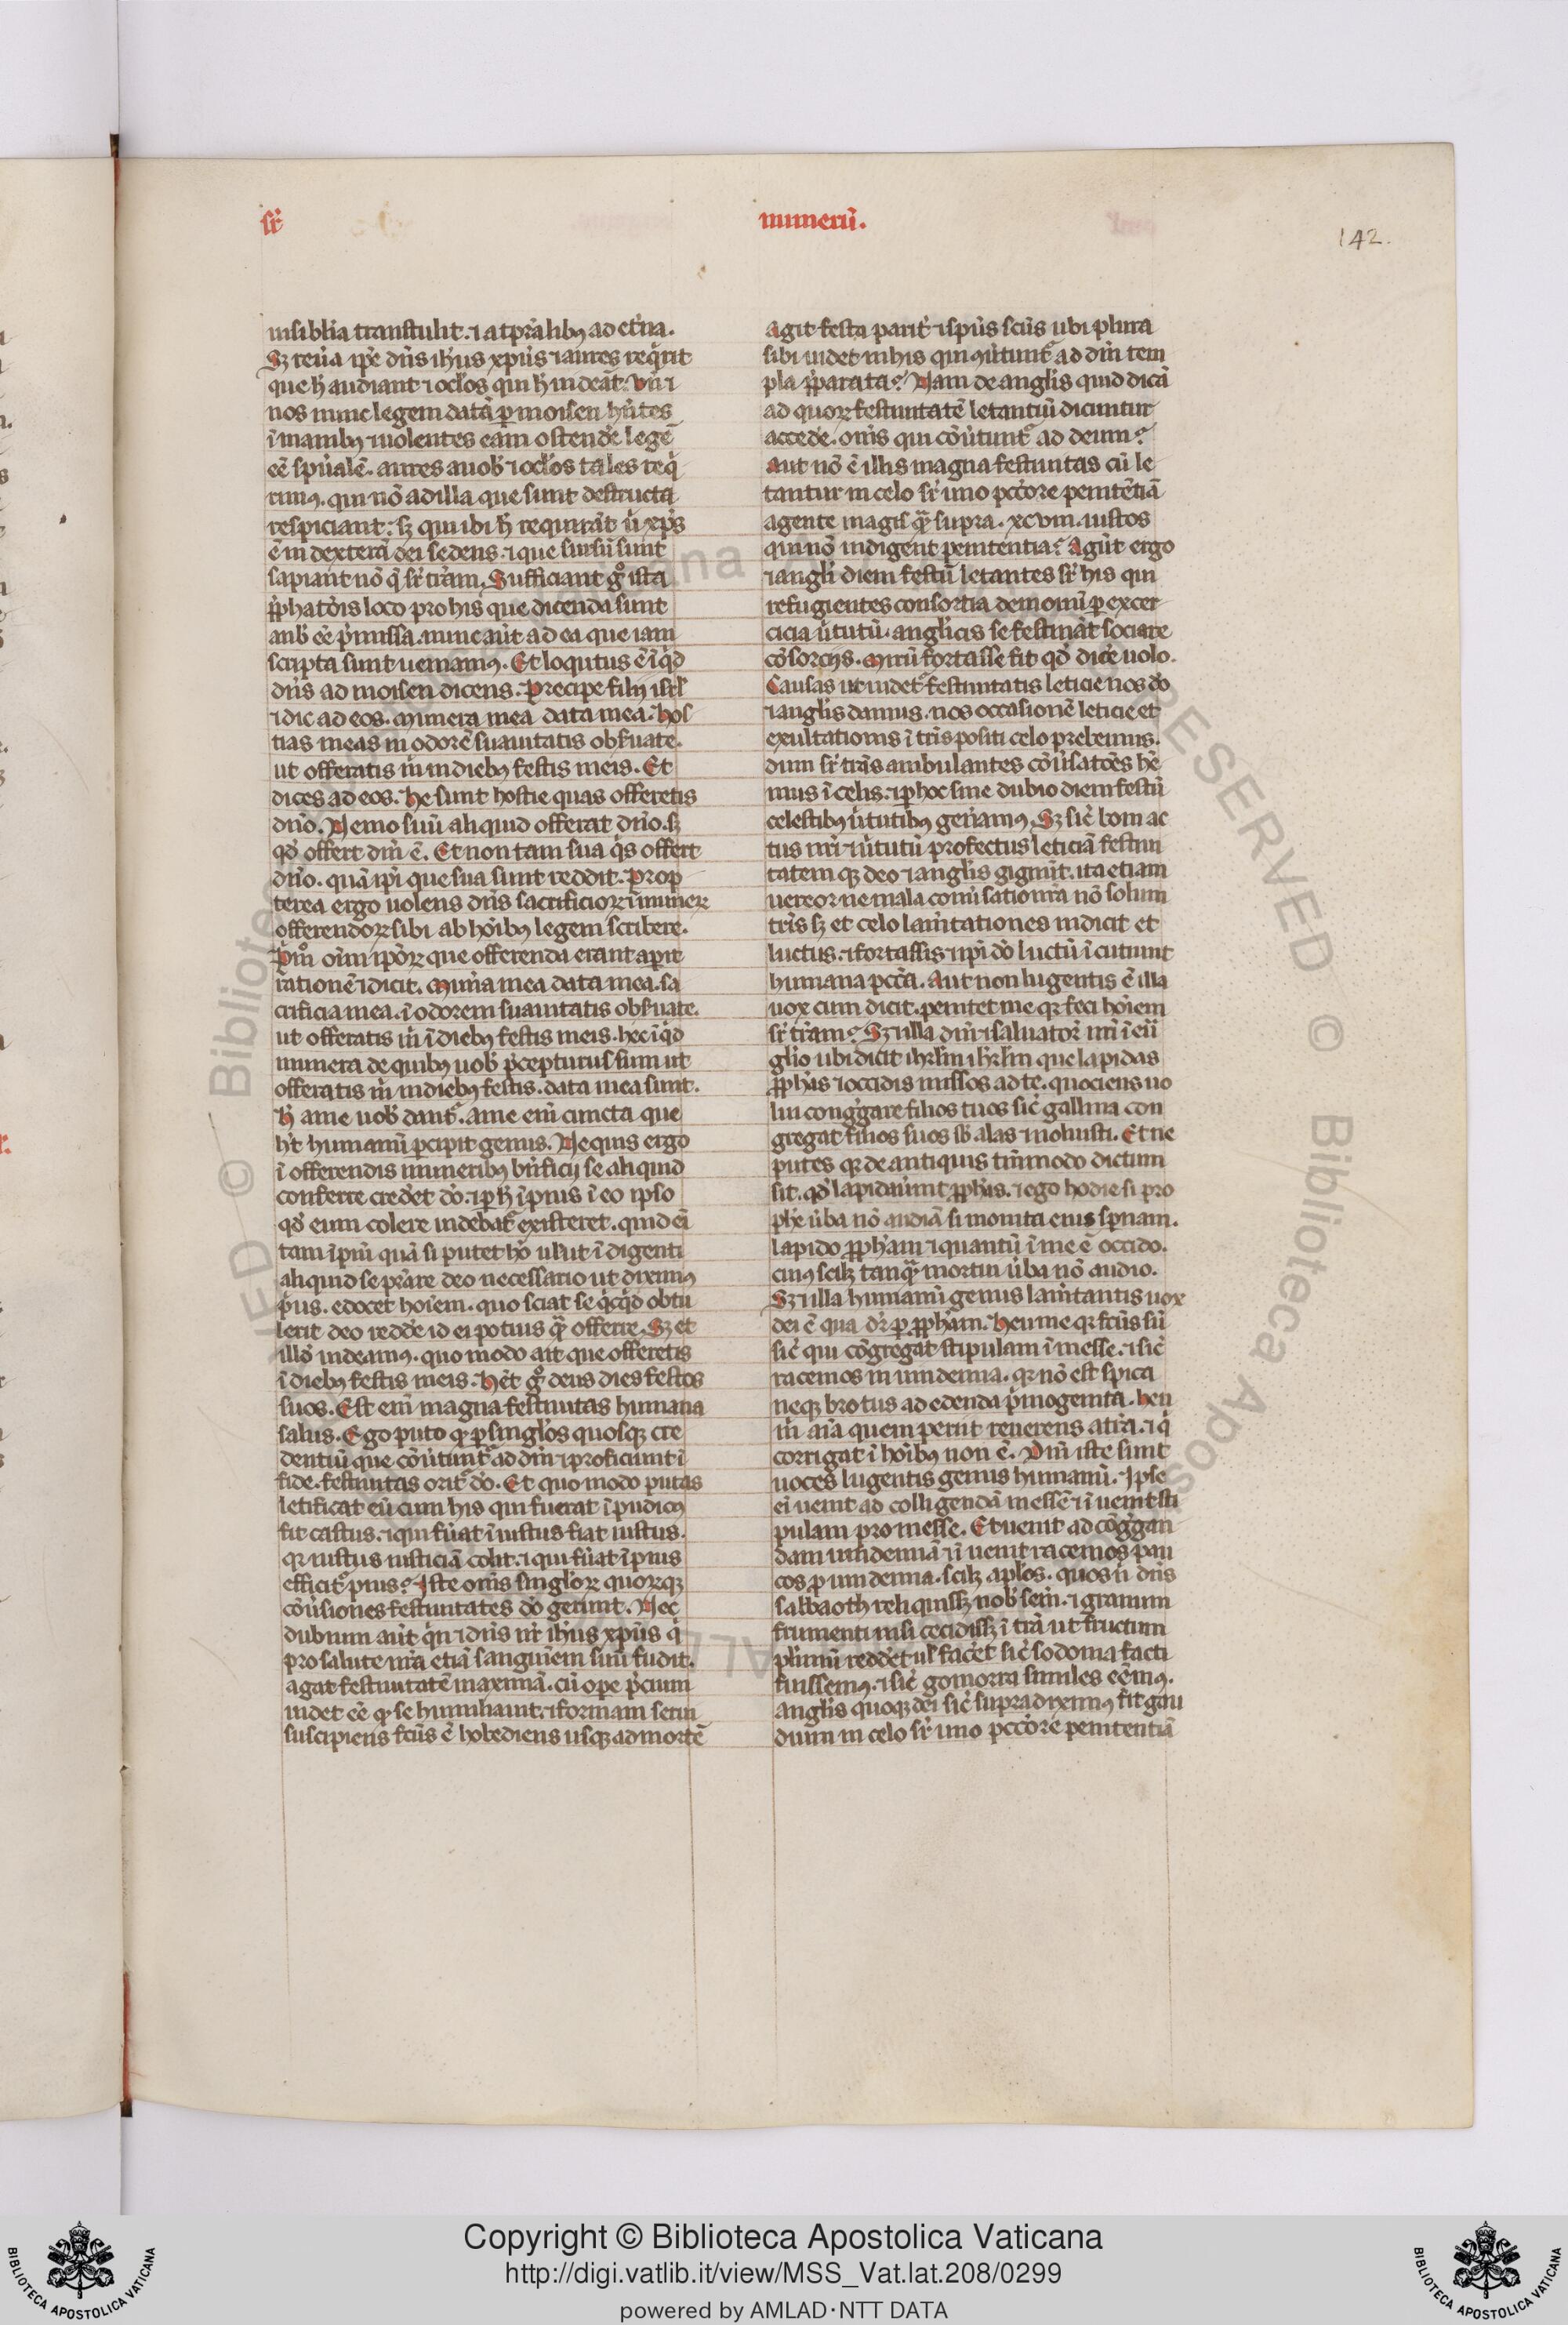 sr̄
numerū.
142.
uisiblia transtulit. ⁊ a tp̄ralibꝫ ad et̾na.
Sꝫ reu̾a ip̄e dn̄s ih̄us xp̄us ⁊ aures reqͥrit
que h̾ audiant ⁊ oc̄los qui h̾ uideāt. Vn̄ ⁊
nos nunc legem datā ꝑ moisen hn̄tes
ī manibꝫ ⁊ uolentes eam ostende̾ legē
eē sp̄ualē. aures a uob̾ ⁊ oc̄los tales reqͥ
rimꝰ. qui nō ad illa que sunt destructa
respiciant: sꝫ qui ibi h̾ requirāt u̾ xp̄s
ē in dextera dei sedens. ⁊ que sursū sunt
sapiant nō q̄ sr̄ tr̄am. Sufficiant gͦ ista
ꝓphatōis loco pro his que dicenda sunt
a nob̾ eē p̄missa. nunc aūt ad ea que iam
scripta sunt ueniamꝰ. Et loqutus ē īqͥd
dn̄s ad moisen dicens. Precipe filiis isrl̄
⁊ dic ad eos. Munera mea data mea. hos
tias meas in odorē suauitatis obs̾uate.
ut offeratis m̄ in diebꝫ festis meis. Et
dices ad eos. he sunt hostie quas offeretis
dn̄o. Nemo suū aliquid offerat dn̄o. sꝫ
qd̾ offert dn̄i ē. Et non tam sua qͥs offert
dn̄o. quā ip̄i que sua sunt reddit. Prop
terea ergo uolens dn̄s sacrificioꝝ ⁊ muneꝝ
offerendoꝝ sibi ab hōibꝫ legem scribere.
Pͥmͦ oīm ip̄oꝝ que offerenda erant aperit
rationē ⁊ dicit. Mun̾a mea data mea. sa
crificia mea. ī odorem suauitatis obs̾uate.
ut offeratis m̄ ī diebꝫ festis meis. hec īqͥd
munera de quibꝫ uob̾ p̄cepturus sum ut
offeratis m̄ in diebꝫ festis. data mea sunt.
h̾ a me uob̾ dant᷑. a me em̄ cuncta que
h̾t humanū ꝑcipit genus. Ne quis ergo
ī offerendis muneribus bn̄ficii se aliquid
conferre credēt dō. ⁊ ꝑ h̾ īpius ī eo ipso
qd̾ eum colere uidebat᷑ existeret. quid eī
tam īpiū quā si putet hō uelut īdigenti
aliquid se prare deo necessario ut diximꝰ
pͥus. edocet hoīem. quo sciat se qͥcqͥd obtu
lerit deo redde̾ id ei potius qͣ offerre. Sꝫ et
illd̾ uideamꝰ. quo modo ait que offeretis
ī diebꝫ festis meis. H̾et gͦ deus dies festos
suos. Est em̄ magna festiuitas humana
salus. Ego puto qꝫ ꝑ singlo̾s quosqꝫ cre
dentiū que cōu̾tunt᷑ ad dm̄ ⁊ proficiunt ī
fide. festiuitas orit᷑ dō. Et quo modo putas
letificat eū cum his qui fuerat īpudicꝰ
fit castus. ⁊ qui fu̾at īiustus fiat iustus.
qr̄ iustus iusticiā colit. ⁊ qui fu̾at īpius
efficit᷑ pius? Iste om̄s singloꝝ quoꝝqꝫ
cōu̾siones festiuitates dō gerunt. Nec
dubium aūt qͥn ⁊ dn̄s nr̄ ih̄us xp̄us qͥ
pro salute nr̄a etiā sanguinem suū fudit.
agat festiuitatē maximā. cū ope p̄cium
uidet eē qꝫ se humiliauit. ⁊ formam serui
suscipiens fcūs ē hobediens usqꝫ ad mortē
agit festa parit̾ ⁊ sp̄us scūs ubi plura
sibi uidet in his qui cōu̾tunt᷑ ad dm̄ tem
pla p̄parata? Nam de anglis quid dicā
ad quoꝝ festiuitatē letantiū dicuntur
accede̾. om̄s qui cōu̾tunt᷑ ad deum?
Aut nō ē illis magna festiuitas cū le
tantur in celo sr̄ uno pccōre penitētiā
agente magis qͣ supra. xcviiii. iustos
qui nō indigent penitentia? Agūt ergo
⁊ angli diem festū letantes sr̄ his qui
refugientes consortia demonū ꝑ excer
cicia u̾tutū. anglicis se festināt sociare
cōsorciis. Mirū fortasse fit qd̾ dic̾e uolo.
Causas ut uidet᷑ festiuitatis leticie nos dō
⁊ anglis damus. nos occasionē leticie et
exultationis ī tr̄is positi celo prebemus.
dum sr̄ tr̄as ambulantes cōu̾satōes hē
mus ī celis. ⁊ ꝑ hoc sine dubio diem festū
celestibꝫ u̾tutibꝫ gen̾amꝰ. Sꝫ sic̾ boni ac
tus nr̄i ⁊ u̾tutū profectus leticiā festiui
tatem qꝫ deo ⁊ anglis gignūt. ita etiam
uereor ne mala cōuisatio nr̄a nō solum
tr̄is sꝫ et celo lam̄tationes indicit et
luctus. ⁊ fortassis ⁊ ip̄i dō luctū īcutiunt
humana pccā. Aut non lugentis ē illa
uox cum dicit. penitet me qr̄ feci hoīem
sr̄ tr̄am? Sꝫ ⁊ illa dn̄i ⁊ saluatoris nr̄i ī euā
glio ubi dicit ihrl̄m ihrl̄m que lapidas
ꝓph̾as ⁊ occidis missos ad te. quociens uo
lui congͤgare filios tuos sic̾ gallina con
gregat filios suos sb̾ alas ⁊ noluisti. Et ne
putes qꝫ de antiquis tm̄modo dictum
sit. qd̾ lapidau̾int ꝓph̾as. ⁊ ego hodie si pro
phe u̾ba nō audiā si monita eius spernam.
lapido ꝓph̾am ⁊ quantū ī me ē occido.
cuiꝰ scilꝫ tanqͣ mortui u̾ba nō audio.
Sꝫ ⁊ illa humanū genus lam̄tantis uox
dei ē qua dr̄ ꝑ ꝓph̾am. Heu me qr̄ fcūs sū
sic̾ qui cōgregat stipulam ī messe. ⁊ sic̾
racemos in uindemia. qr̄ nō est spica
neqꝫ brotus ad edenda pͥmogenita. heu
m̄ aīa quem periit reuerens a tr̄a. ⁊ qͥ
corrigat ī hōibꝫ non ē. Dn̄i iste sunt
uoces lugentis genus humanū. Ipse
eī uenit ad colligendā messē ⁊ īuenit sti
pulam pro messe. Et uenit ad cōgͤgan
dam uindemiā ⁊ īuenit racemos pau
cos ꝑ uindemia. scilꝫ aplo̾s. quos n̄ dn̄s
sabbaoth reliquissꝫ nob̾ sem̄. ⁊ granum
frumenti nisi cecidissꝫ ī tr̄a ut fructum
plimū redde̾t ul̾ face̾t sic̾ sodoma facti
fuissemꝰ. ⁊ sic̾ gomorra similes eēmꝰ.
anglis quoqꝫ dei sic̾ supra diximꝰ fit gau
dium in celo sr̄ uno pccōre penitentiā
Copyright © Biblioteca Apostolica Vaticana
http://digi.vatlib.it/view/MSS_Vat.lat.208/0299
powered by AMLAD·NTT DATA